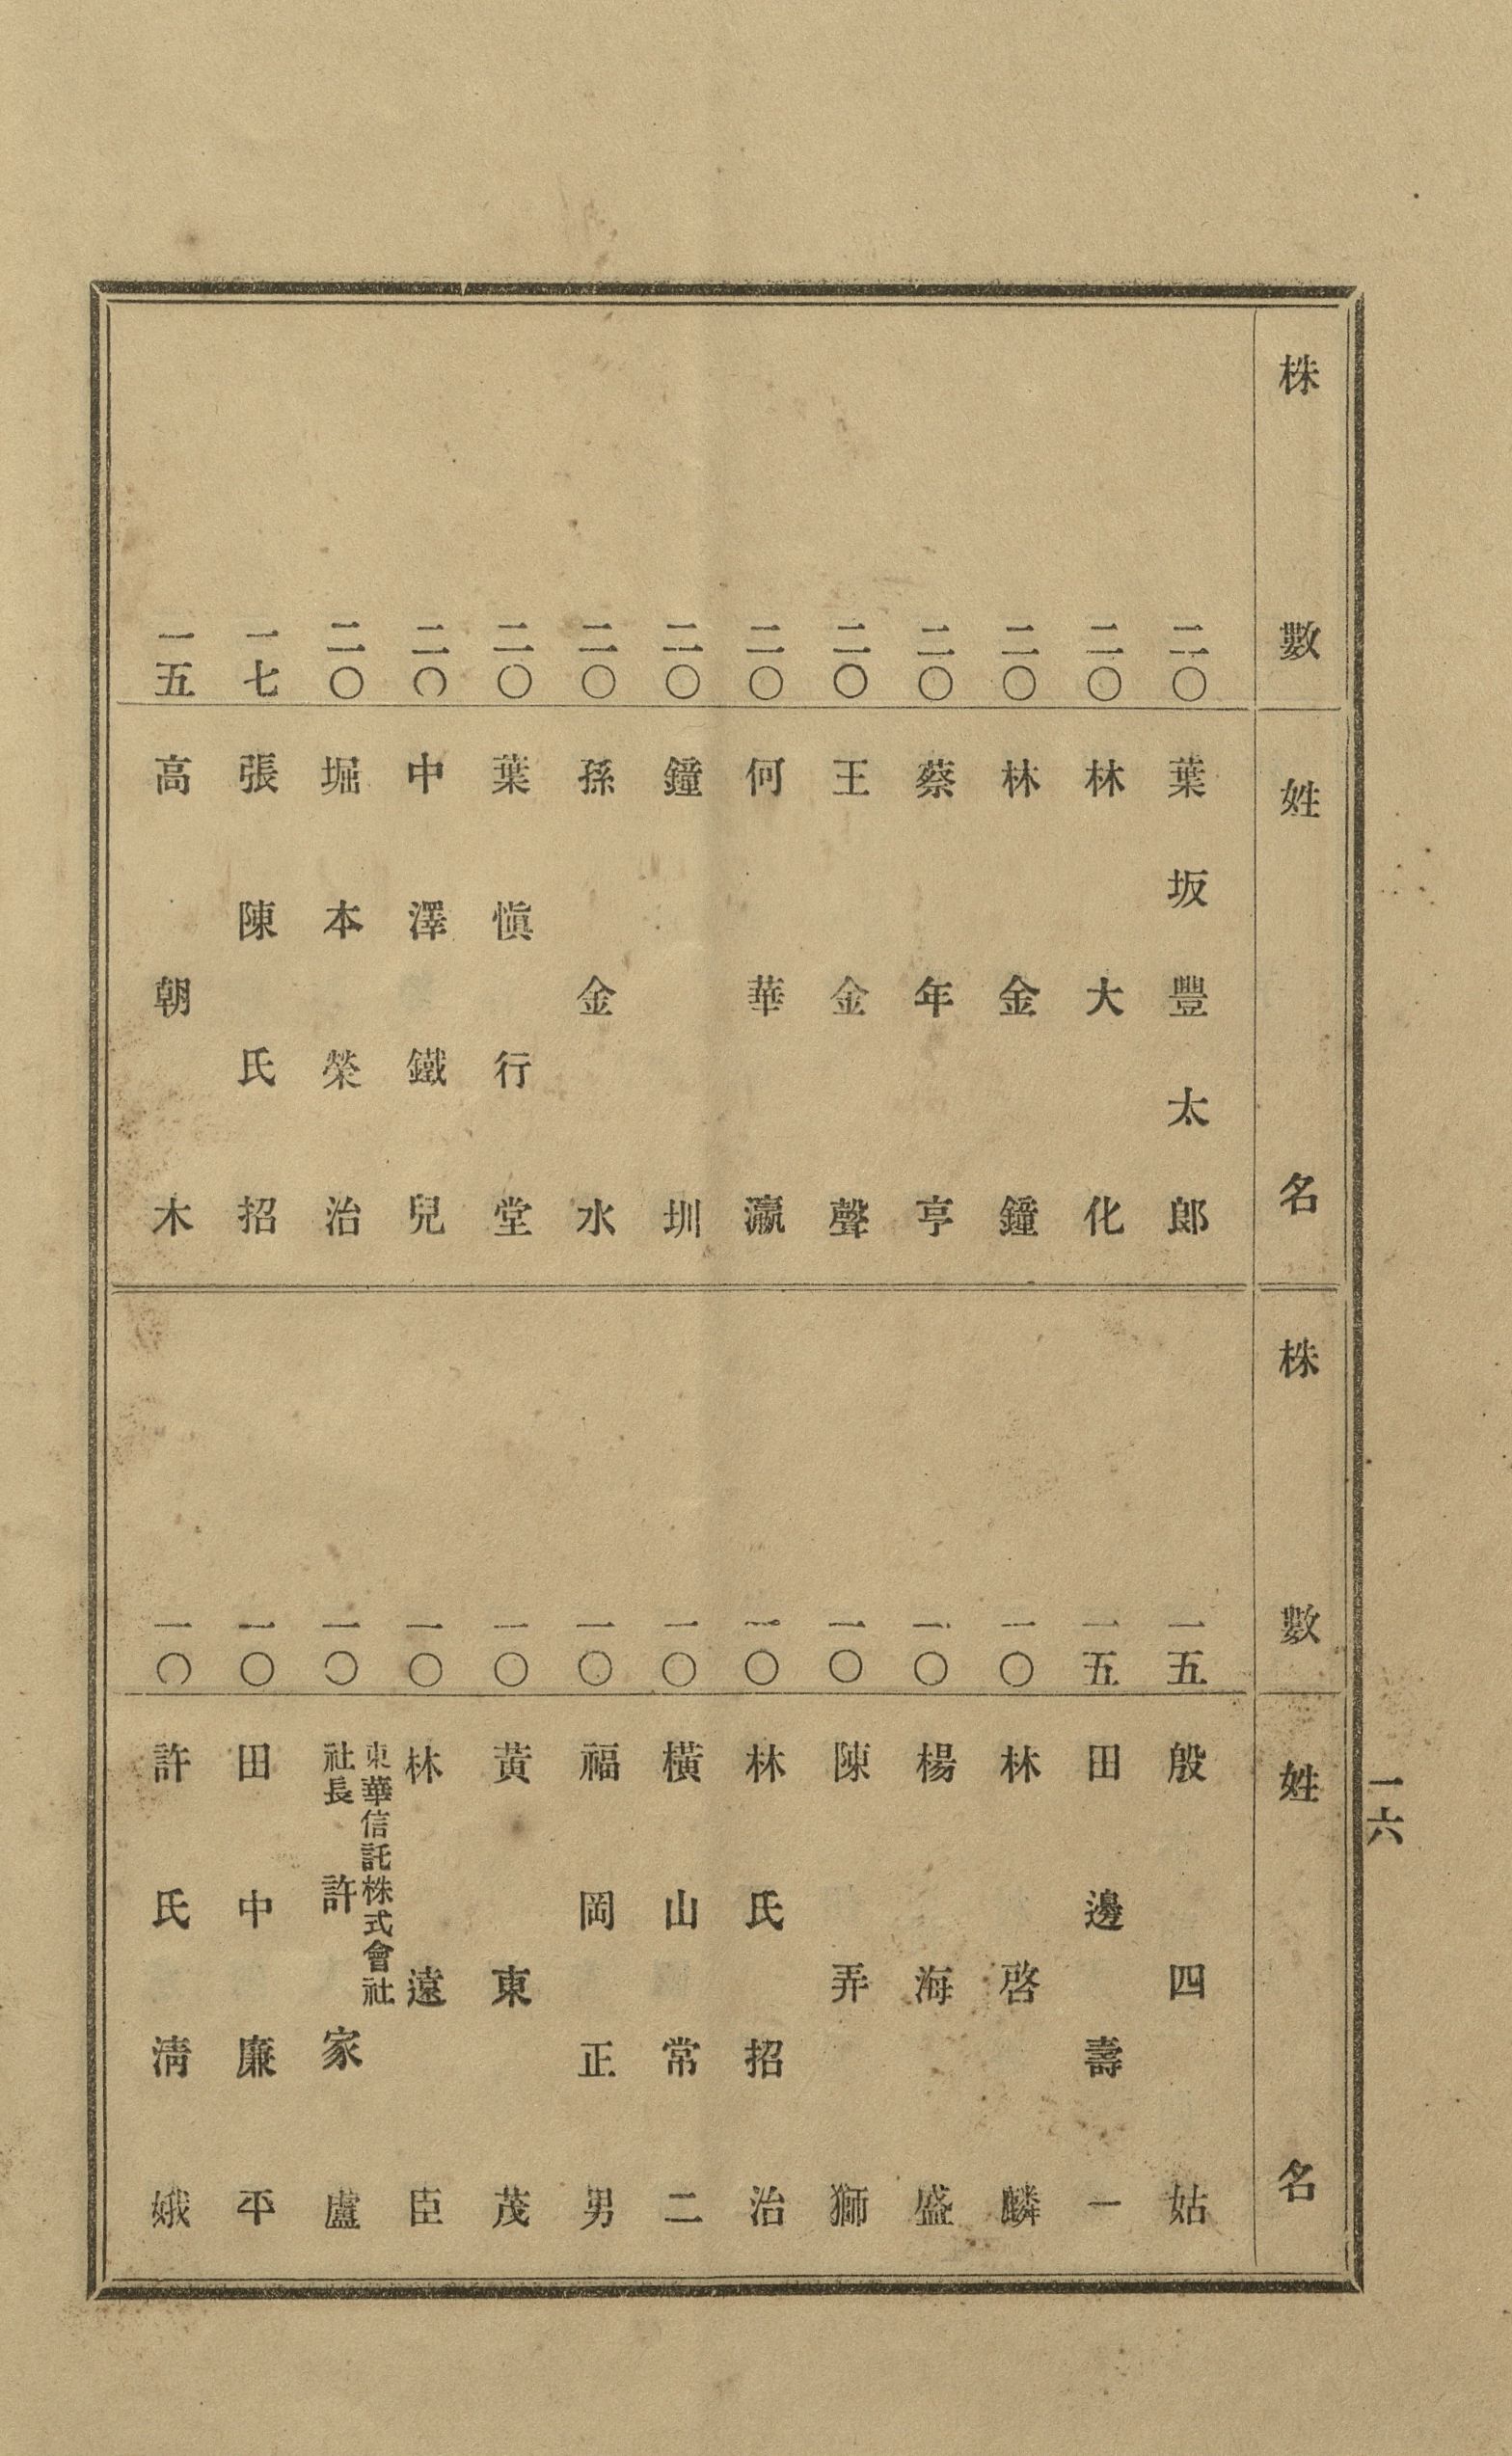 株數 姓名
二〇 葉坂豐太郎
二〇 林大化
二〇 林金鐘
二〇 蔡年亨
二〇 王金聲
二〇 何華瀛
二〇 鐘圳
二〇 孫金水
二〇 葉愼行堂
二〇 中澤鐵兒
二〇 堀本榮治
一七 張陳氏招
一五 高朝木
株數 姓名
一五 殷四姑
一五 田邊壽一
一〇 林啓麟
一〇 楊海盛
一〇 陳弄獅
一〇 林氏招治
一〇 橫山常二
一〇 福岡正男
一〇 黃東茂
一〇 林遠臣
一〇 東華信託株式會社
社長 許家盧
一〇 田中廉平
一〇 許氏淸娥
一六